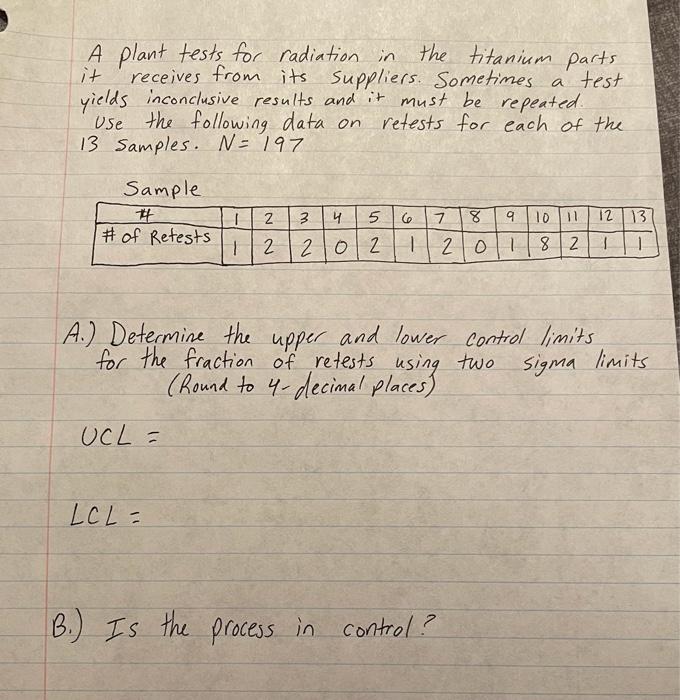 A plant tests for radiation in the titanium parts
it receives from its suppliers. Sometimes a test
yields inconclusive results and it must be repeated.
Use the following data on retests for each of the
13 samples. N= 197
Sample
# 1 2 3 4 5 6 7 8 9 10 11 12 13
# of Retests 1 2 2 0 2 1 2 0 1 8 2 1 1
A.) Determine the upper and lower control limits
for the fraction of retests using two sigma limits
(Round to 4-decimal places)
UCL =
LCL =
B.) Is the process in control?